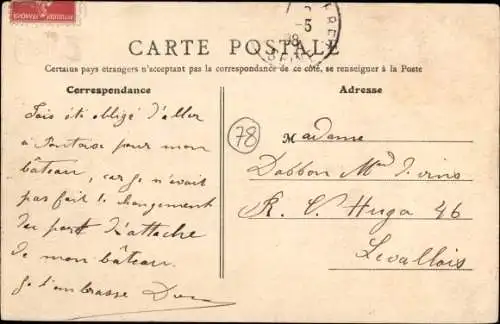 CARTE POSTALE
Certains pays étrangers n'acceptant pas la correspondance de ce côté, se renseigner à la Poste
Correspondance
Adresse
J'ais été obligé d'aller
à Pontoise pour mon
bâteau, car je n'avait
pas fait le changement
du port d'attache
de mon bâteau.
Je t'embrasse
78
Madame
Dabbon Md Vins
R. V. Hugo 46
Levallois